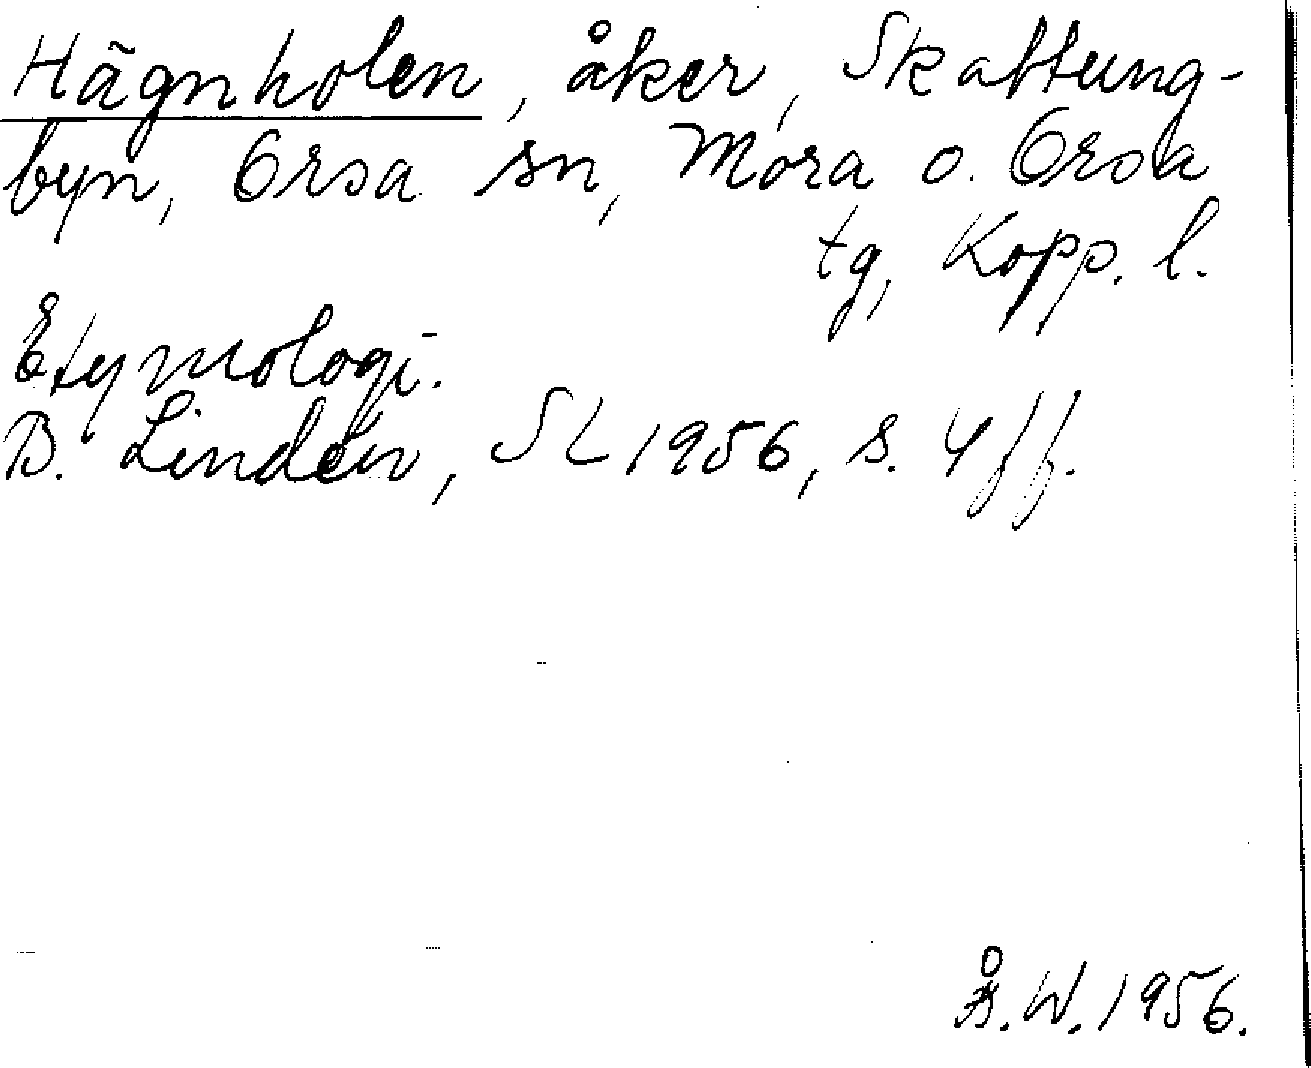 Hägnholen, åker, Skattung-
byn, Orsa sn, Mora o. Orsa
tg, Kopp. l.
Etymologi.
B. Lindén, SL 1956, s. 4 ff.
Å. W. 1956.